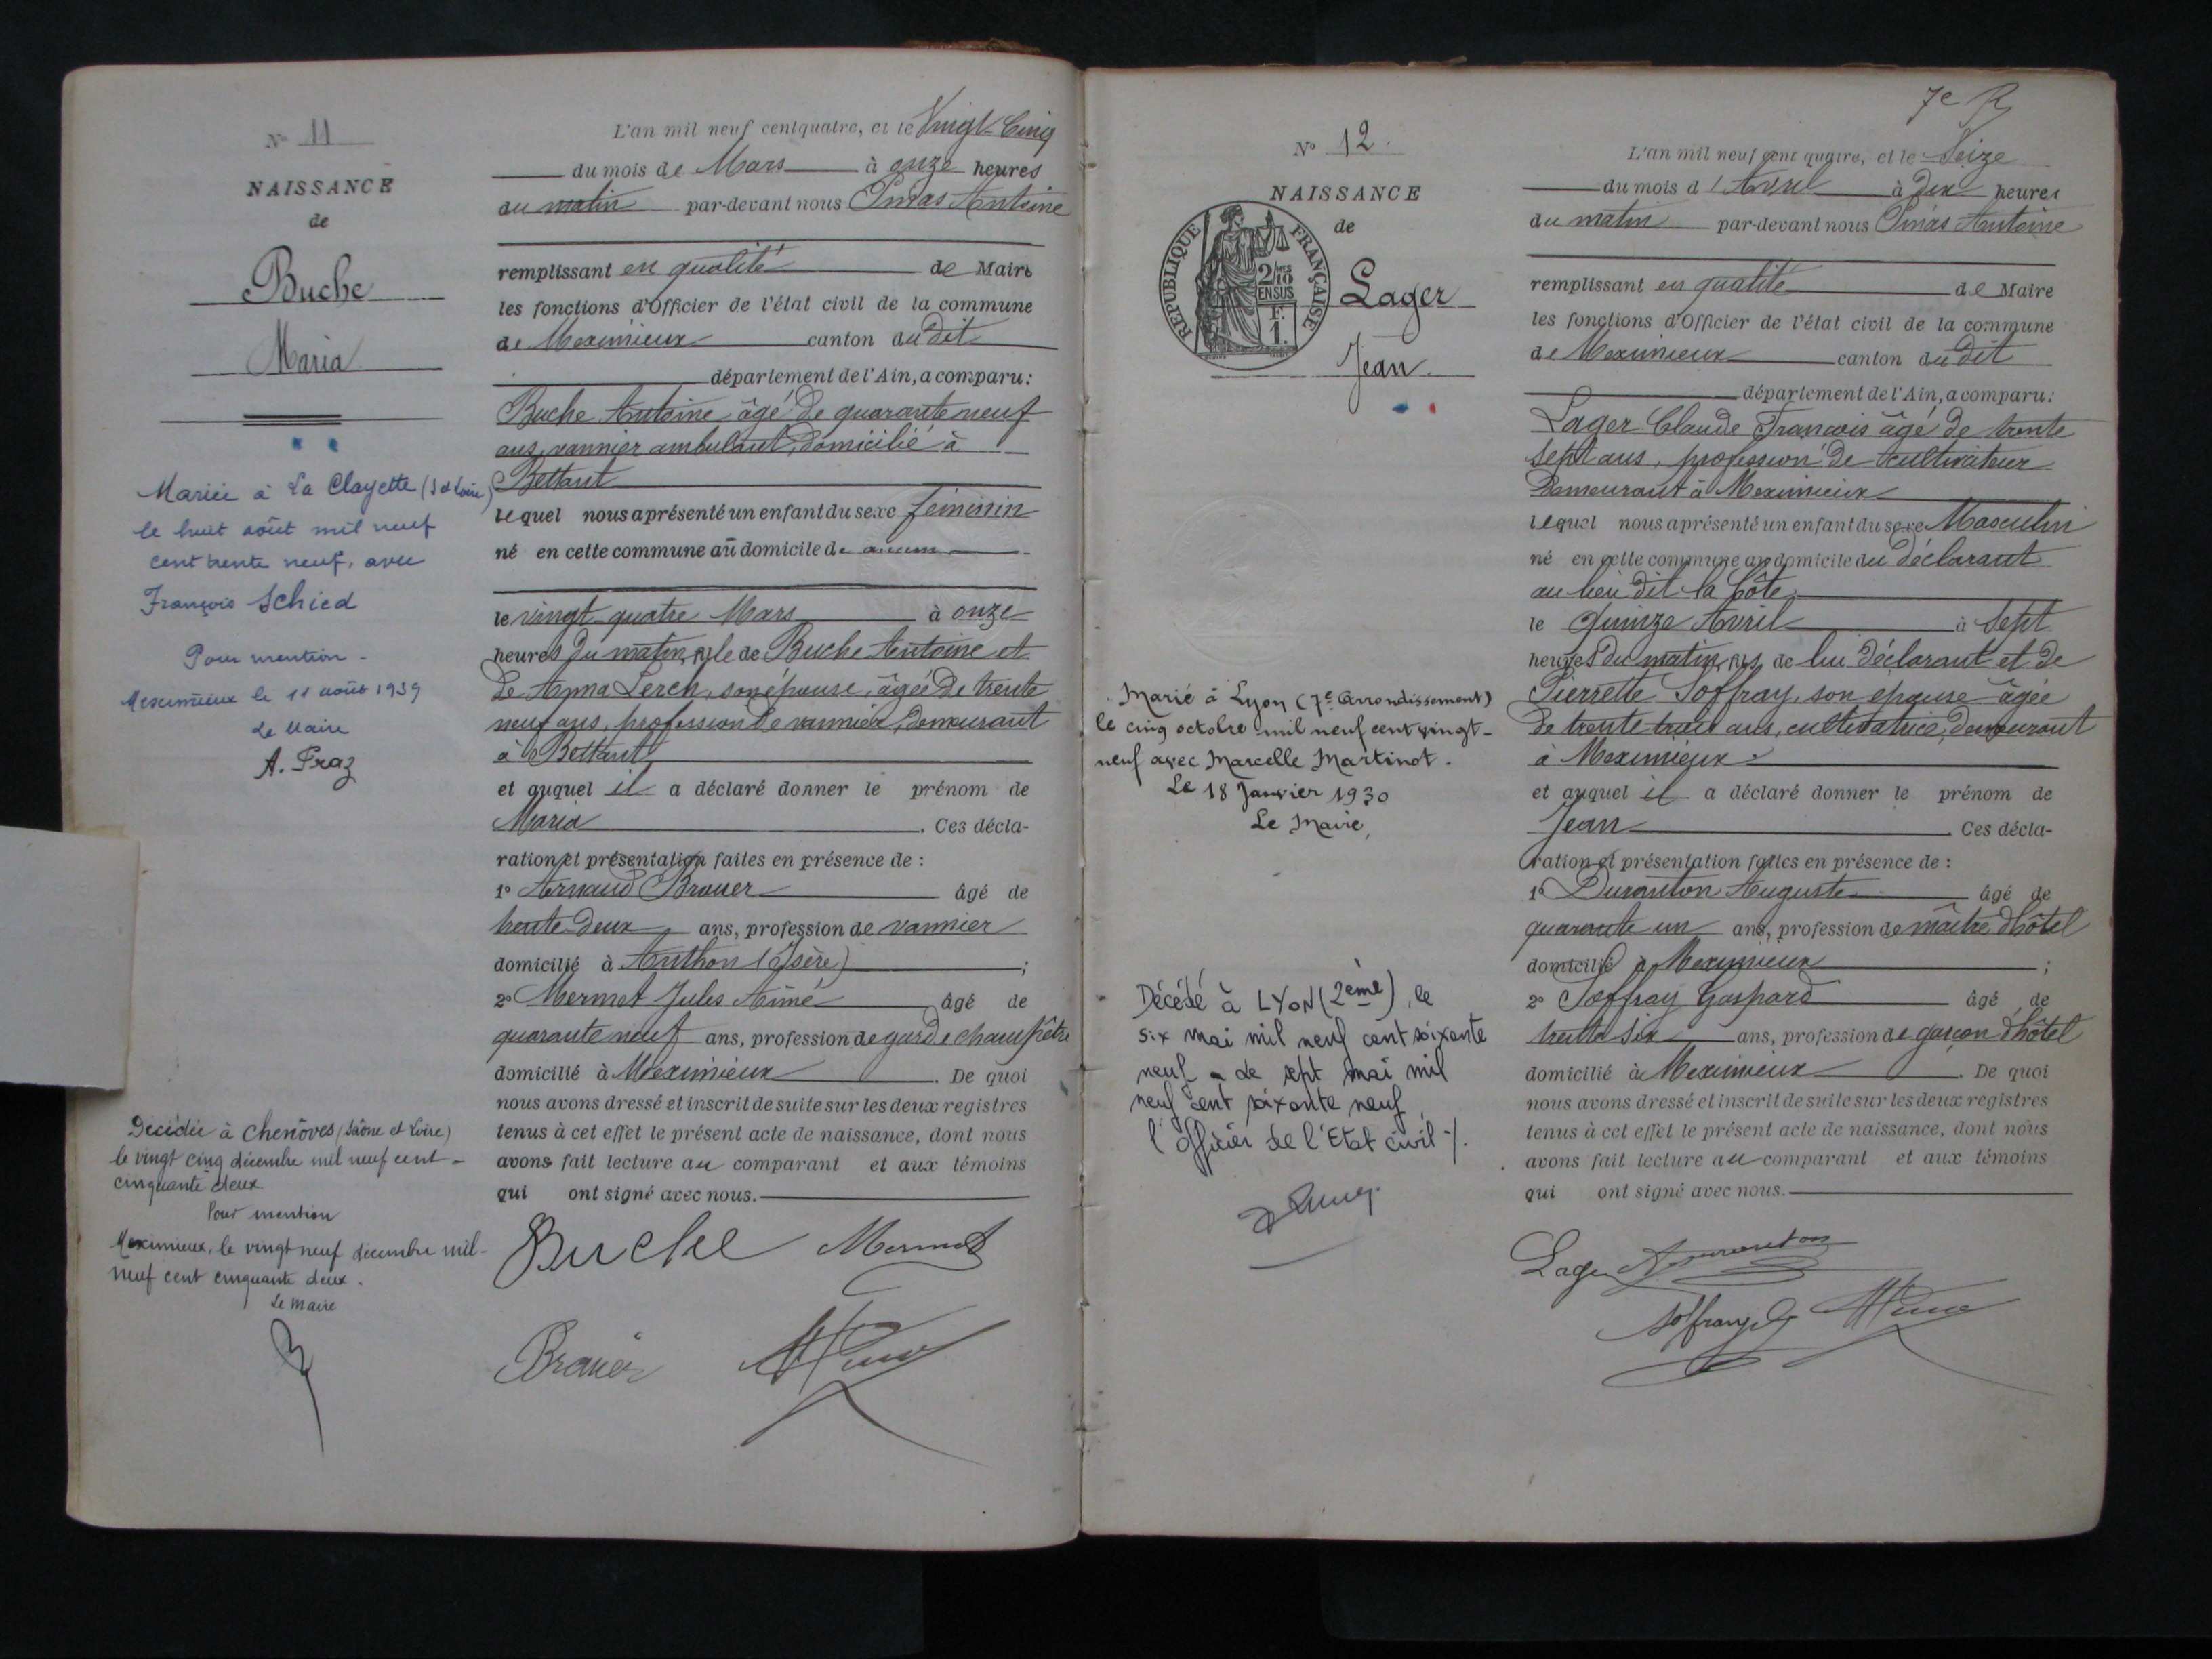 N° 11
NAISSANCE
de
Buche
Maria
Mariée à La Clayette (S et Loire)
le huit août mil neuf
cent trente neuf, avec
François Schied
Pour mention -
Meximieux le 11 août 1939
Le Maire
A. Praz
Décédée à Chenôves (Saône et Loire)
le vingt cinq décembre mil neuf cent -
cinquante deux.
Pour mention
Meximieux, le vingt neuf décembre mil -
neuf cent cinquante deux.
Le Maire
L'an mil neuf cent quatre, et le Vingt-Cinq
du mois de Mars à onze heures
du matin par-devant nous Antoine
remplissant en qualité de Maire
les fonctions d'Officier de l'état civil de la commune
de Meximieux canton du dit
département de l'Ain, a comparu:
Buche Antoine âgé de quarante neuf
ans, vannier ambulant, domicilié à
Bettant
lequel nous a présenté un enfant du sexe féminin
né en cette commune au domicile de aucun
le vingt quatre Mars à onze
heures du matin, fille de Buche Antoine et
de Anna Lerch, son épouse, âgée de trente
neuf ans, profession de vannier, demeurant
à Bettant
et auquel il a déclaré donner le prénom de
Maria. Ces décla-
ration et présentation faites en présence de :
1° Arnaud Brouer âgé de
trente deux ans, profession de vannier
domicilié à Anthon (Isère) ;
2° Mermet Jules Aimé âgé de
quarante neuf ans, profession de garde champêtre
domicilié à Meximieux. De quoi
nous avons dressé et inscrit de suite sur les deux registres
tenus à cet effet le présent acte de naissance, dont nous
avons fait lecture au comparant et aux témoins
qui ont signé avec nous.
Buche Mermet
7e R
N° 12.
NAISSANCE
de
REPUBLIQUE FRANÇAISE
2/10 MES
EN SUS
F.
1.
Lager
Jean
Marié à Lyon (7e Arrondissement)
le cinq octobre mil neuf cent vingt-
neuf avec Marcelle Martinot.
Le 18 Janvier 1930
Le Maire,
Décédé à LYON (2ème), le
six mai mil neuf cent soixante
neuf - Le sept mai mil
neuf cent soixante neuf
l'officier de l'Etat civil -/.
L'an mil neuf cent quatre, et le Seize
du mois d'Avril à dix heures
du matin par-devant nous Antoine
remplissant en qualité de Maire
les fonctions d'Officier de l'état civil de la commune
de Meximieux canton du dit
département de l'Ain, a comparu:
Lager Claude François âgé de trente
sept ans, profession de cultivateur
demeurant à Meximieux
lequel nous a présenté un enfant du sexe Masculin
né en cette commune au domicile du déclarant
au lieu dit la Côte
le Quinze Avril à Sept
heures du matin, fils de lui déclarant et de
Pierrette Joffray, son épouse âgée
de trente trois ans, cultivatrice, demeurant
à Meximieux
et auquel il a déclaré donner le prénom de
Jean. Ces décla-
ration et présentation faites en présence de :
1° Duranton Auguste âgé de
quarante un ans, profession de maître d'hôtel
domicilié à Meximieux ;
2° Joffray Gaspard âgé de
trente six ans, profession de garçon d'hôtel
domicilié à Meximieux. De quoi
nous avons dressé et inscrit de suite sur les deux registres
tenus à cet effet le présent acte de naissance, dont nous
avons fait lecture au comparant et aux témoins
qui ont signé avec nous.
Lager A Duranton